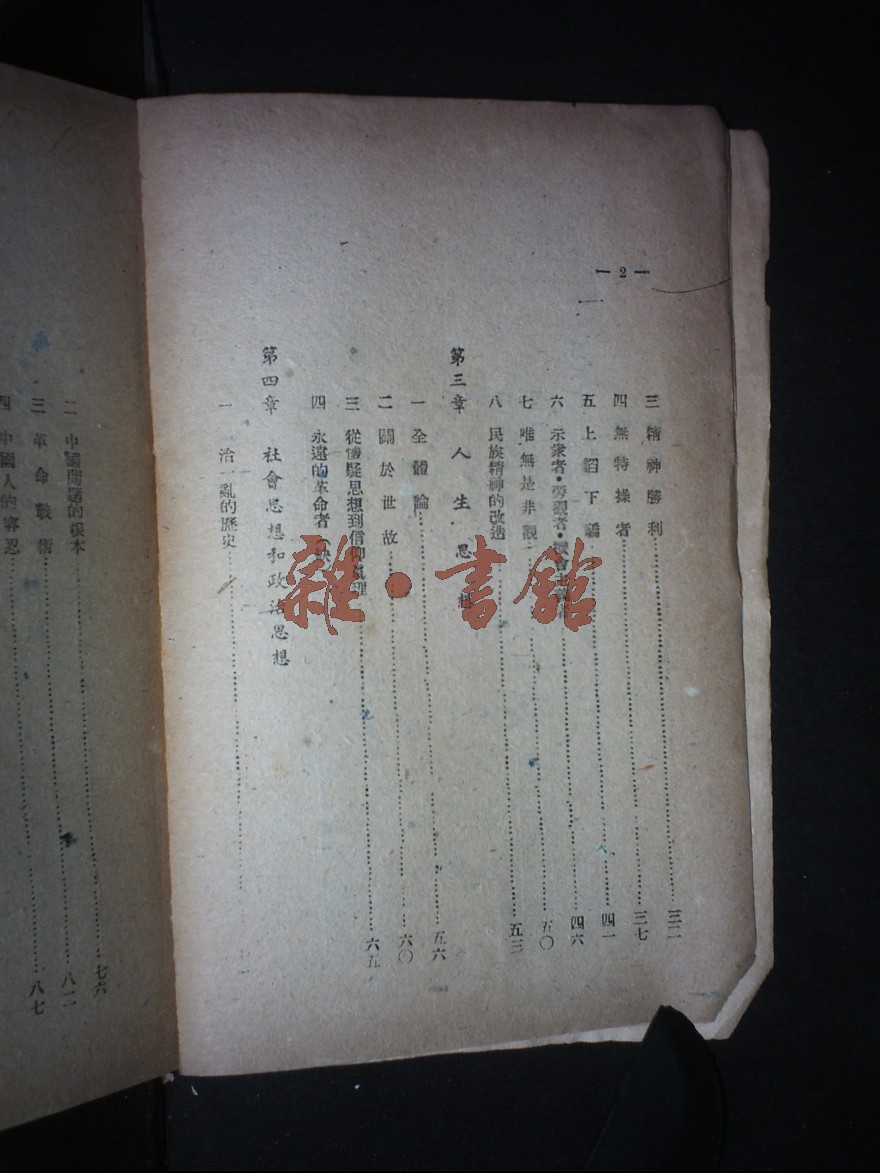 — 2 —
三 精神勝利……三二
四 無特操者……三七
五 上諂下驕……四一
六 示衆者・旁觀者・機會……四六
七 唯無是非觀……五〇
八 民族精神的改造……五三
第三章 人生思想
一 全體論……五六
二 關於世故……六〇
三 從懷疑思想到信仰真理……六五
四 永遠的革命者
第四章 社會思想和政治思想
一 一治一亂的歷史……七一
二 中國問題的根本……七六
三 革命戰術……八二
四 中國人的容忍……八七
雜・書館